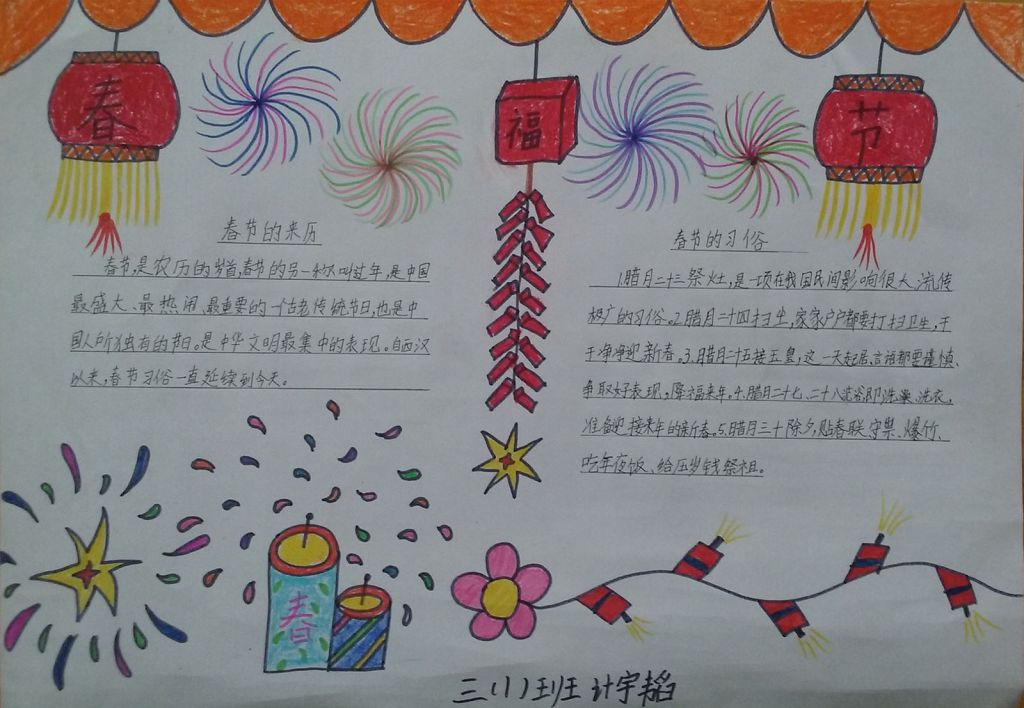 春
福
节
春节的来历
春节,是农历的岁首,春节的另一称叫过年,是中国
最盛大、最热闹、最重要的一个古老传统节日,也是中
国人所独有的节日。是中华文明最集中的表现。自西汉
以来,春节习俗一直延续到今天。
春节的习俗
1.腊月二十三祭灶,是一项在我国民间影响很大、流传
极广的习俗。2.腊月二十四扫尘,家家户户都要打扫卫生,干
干净净迎新春。3.腊月二十五接玉皇,这一天起居、言语都要谨慎,
争取好表现,降福来年。4.腊月二十七、二十八洗浴即洗澡、洗衣,
准备迎接来年的新春。5.腊月三十除夕,贴春联、守祟、爆竹、
吃年夜饭、给压岁钱、祭祖。
春
三(1)班 计宇韬